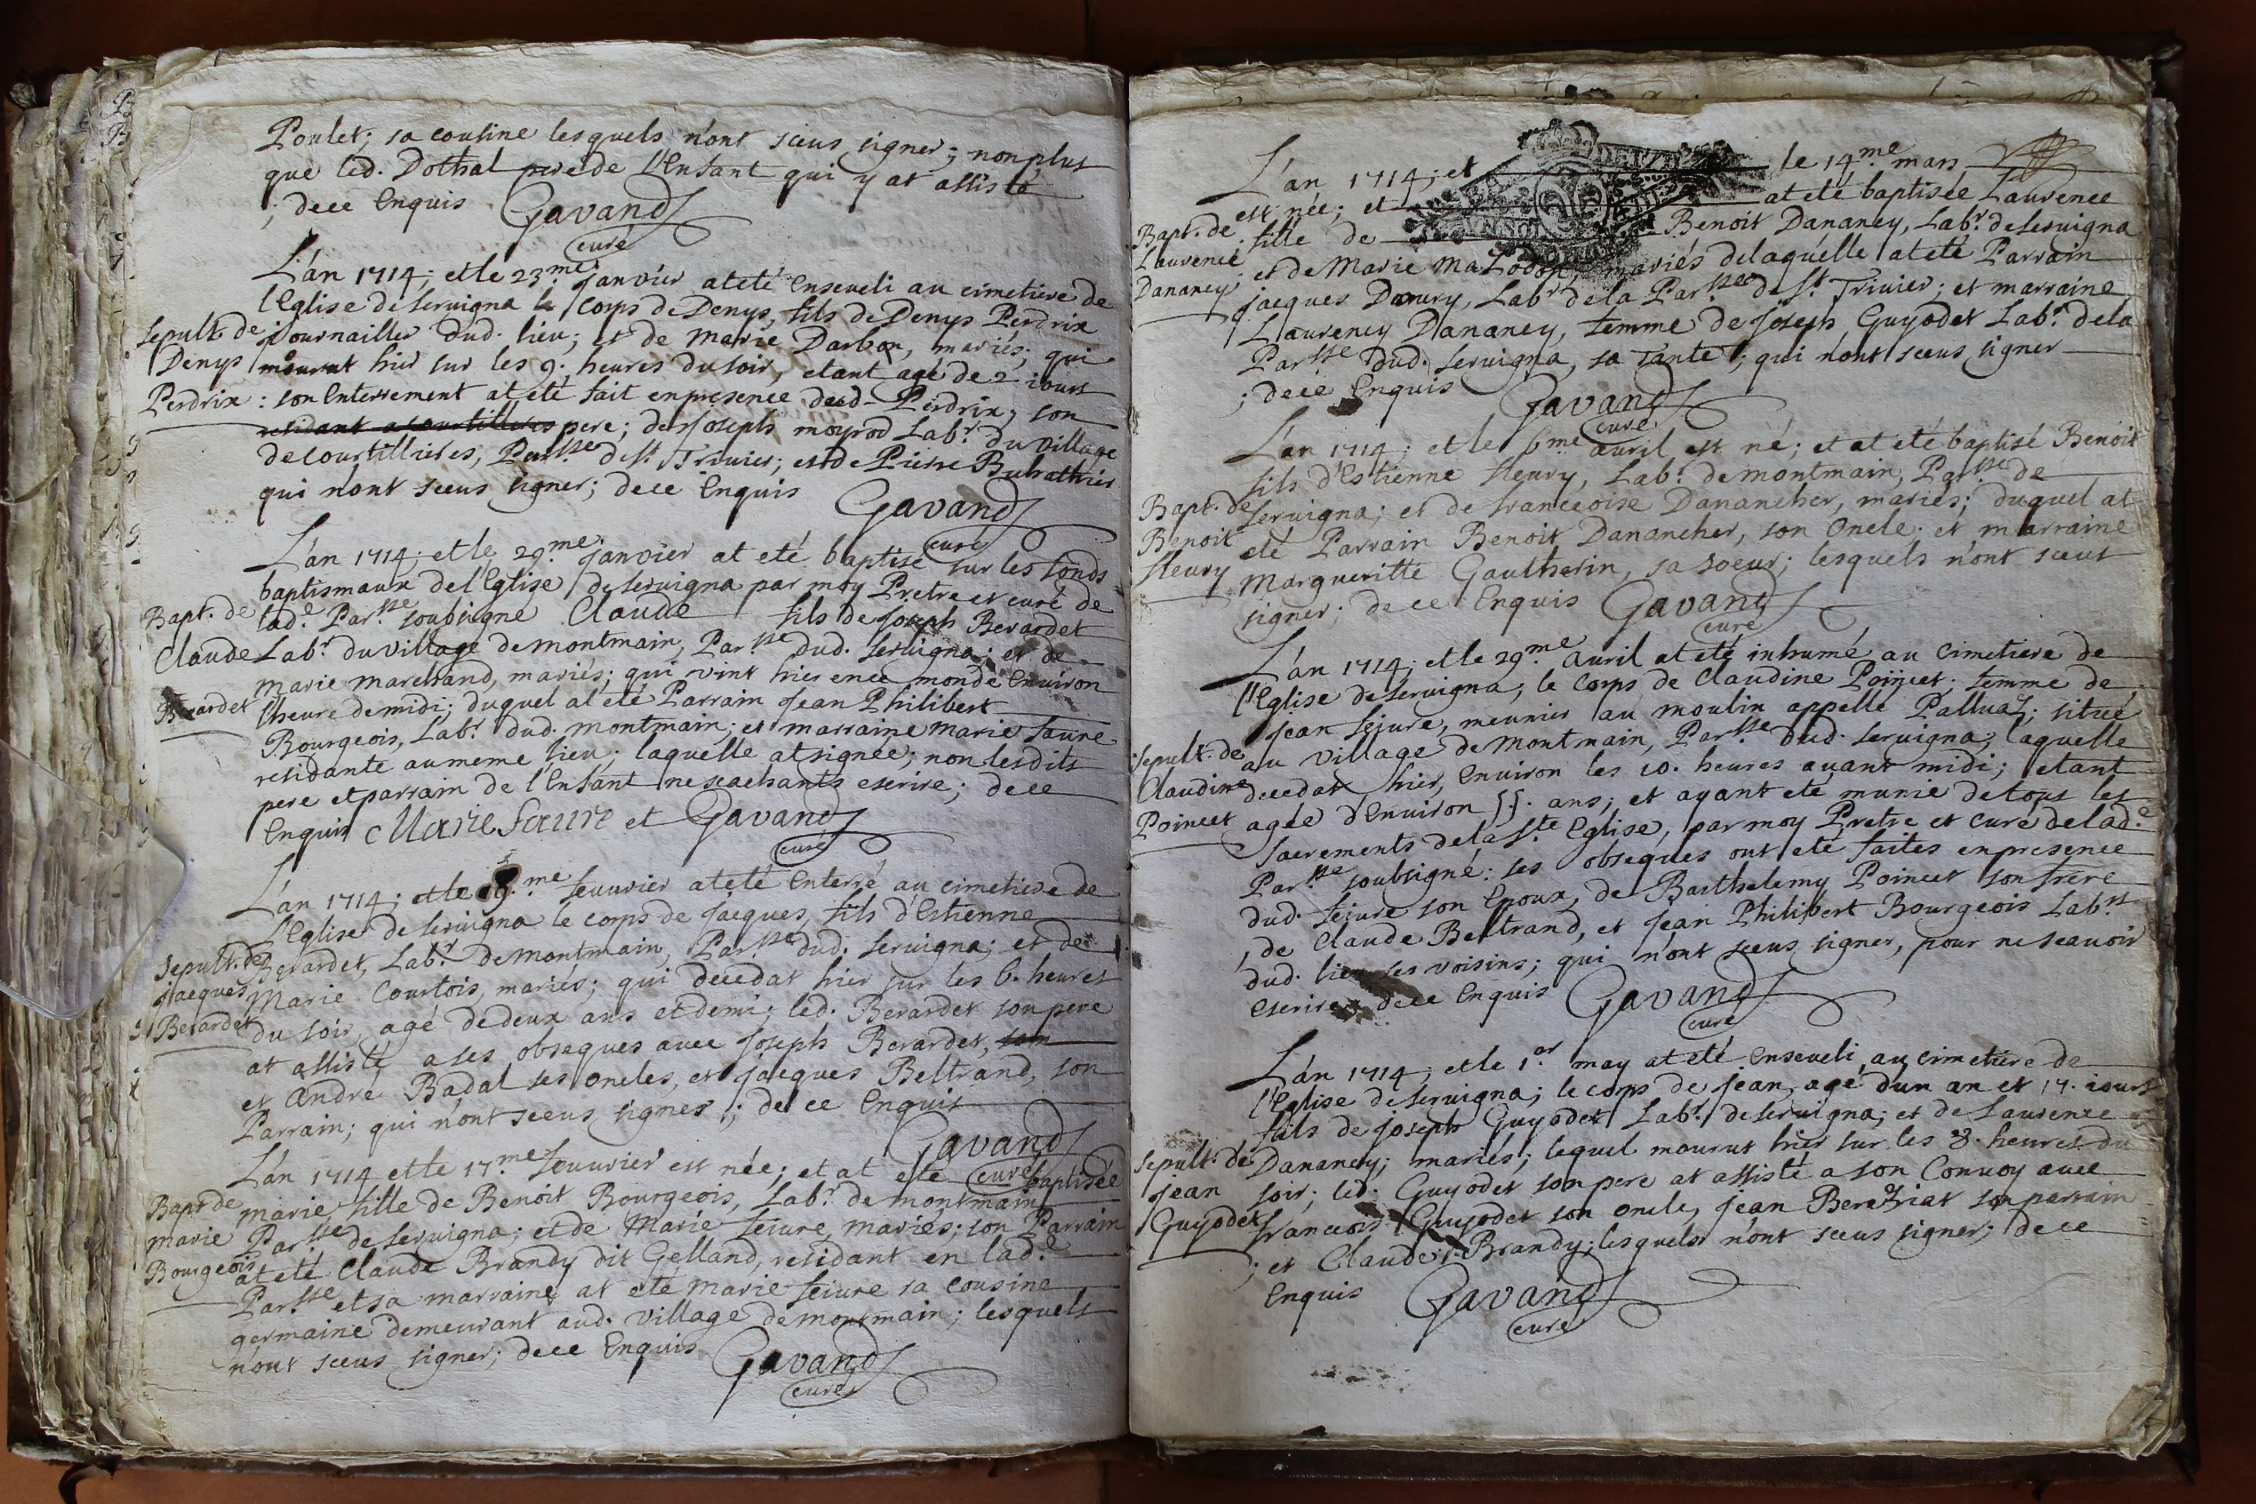 Poulet; sa cousine lesquels n'ont sceus signer; non plus
que led. Dothal pere de l'Enfant qui y at assisté
; de ce Enquis Gavand
curé
L'an 1714; et le 23.me Janvier at eté Enseveli au cimetiere de
l'Eglise de servigna le Corps de Denys, fils de Denys Perdrix
Sepult. de
Denys
Perdrix
journaillier dud. lieu; et de Marie Darbon, mariés; qui
mourut hier sur les 9. heures du soir, etant agé de 2 iours
: son Enterrement at eté fait en presence dud. Perdrix, son
residant a courtillieres pere; de Joseph moyrod Lab.r du village
de courtillieres, Par.sse de S.t Trivier; et de Pierre
qui n'ont sceus signer; de ce Enquis Gavand
curé
L'an 1714; et le 29.me Janvier at eté baptisé sur les fonds
baptismaux de l'Eglise de servigna par moy Pretre et curé de
Bapt. de
Claude
Berardet
lad.e Par.sse soubsigné Claude fils de Joseph Berardet
Lab.r du village de montmain, Par.sse dud. servigna; et de
Marie marchand, mariés; qui vint hier en ce monde Environ
l'heure de midi; duquel at eté Parrain Jean Philibert
Bourgeois, Lab.r dud. montmain; et marraine marie faure
residante au meme lieu; laquelle at signée; non lesdits
pere et parrain de l'Enfant ne scachants escrire; de ce
Enquis Marie faure et Gavand
curé
L'an 1714; et le 9.me feuvrier at eté Enterré au cimetiere de
l'Eglise de servigna le corps de Jacques, fils d'Estienne
Sepult. de
Jacques
Berardet
Berardet, Lab.r de montmain, Par.sse dud. servigna; et de
Marie Courtois, mariés; qui decedat hier sur les 6. heures
du soir, agé de deux ans et demi; led. Berardet son pere
at assisté a ses obseques avec Joseph Berardet, son
et André Badal ses oncles, et Jacques Beltrand, son
Parrain; qui n'ont sceus signer; de ce Enquis
Gavand
curé
L'an 1714 et le 17.me feuvrier est née; et at eté baptisée
Bapt de
marie
Bourgeois
marie fille de Benoit Bourgeois, Lab.r de montmain
Par.sse de servigna; et de Marie sejure, mariés; son Parrain
at eté Claude Brandy dit Gelland, residant en lad.e
Par.sse et sa marraine at eté Marie sejure sa cousine
germaine demeurant aud. village de montmain; lesquels
n'ont sceus signer; de ce Enquis Gavand
curé
L'an 1714; et le 14.me mars
est née; et at eté baptisée Laurence
Bapt. de
Laurence
Dananey
fille de Benoit Dananey, Lab.r de servigna
et de Marie mariés de laquelle at eté Parrain
jacques Lab.r de la Par.sse de S.t Trivier; et marraine
Laurency Dananey, femme de Joseph Guyodet Lab.r de la
Par.sse dud. servigna, sa Tante; qui n'ont sceus signer
; de ce Enquis Gavand
curé
L'an 1714; et le 6.me auril est né; et at eté baptisé Benoit
fils d'Estienne fleury, Lab.r de montmain, Par.sse de
Bapt. de
Benoit
fleury
servigna; et de francoise Danancher, mariés; duquel at
eté Parrain Benoit Danancher, son Oncle; et marraine
Margueritte Gautherin, sa soeur; lesquels n'ont sceus
signer; de ce Enquis Gavand
curé
L'an 1714; et le 29.me Auril at eté inhumé au Cimetiere de
l'Eglise de servigna; le Corps de Claudine Poincet; femme de
Jean sejure, meunier au moulin appellé Palluaz; situé
Sepult. de
Claudine
Poincet
au village de montmain, Par.sse dud. servigna; laquelle
decedat hier, Environ les 10. heures avant midi; etant
agée d'Environ 55. ans; et ayant eté munie de tous les
sacrements de la S.te Eglise, par moy Pretre et curé de lad.e
Par.sse soubsigné: ses obseques ont eté faites en presence
dud. sejure son Epoux, de Barthelemy Poincet son frere
, de Claude Beltrand, et Jean Philibert Bourgeois Lab.rs
dud. lieu ses voisins; qui n'ont sceus signer, pour ne scavoir
escrire, de ce Enquis Gavand
curé
L'an 1714; et le 1.er may at eté Enseveli au cimetiere de
l'Eglise de servigna; le corps de Jean, agé d'un an et 17. iours
fils de Joseph Guyodet Lab.r de servigna; et de Laurence
Sepult. de
Jean
Guyodet
Dananey; mariés; lequel mourut hier sur les 8. heures du
soir; led. Guyodet son pere at assisté a son Convoy avec
francois Guyodet son oncle, Jean Bereziat son parrain
; et Claude Brandy; lesquels n'ont sceus signer; de ce
Enquis Gavand
curé